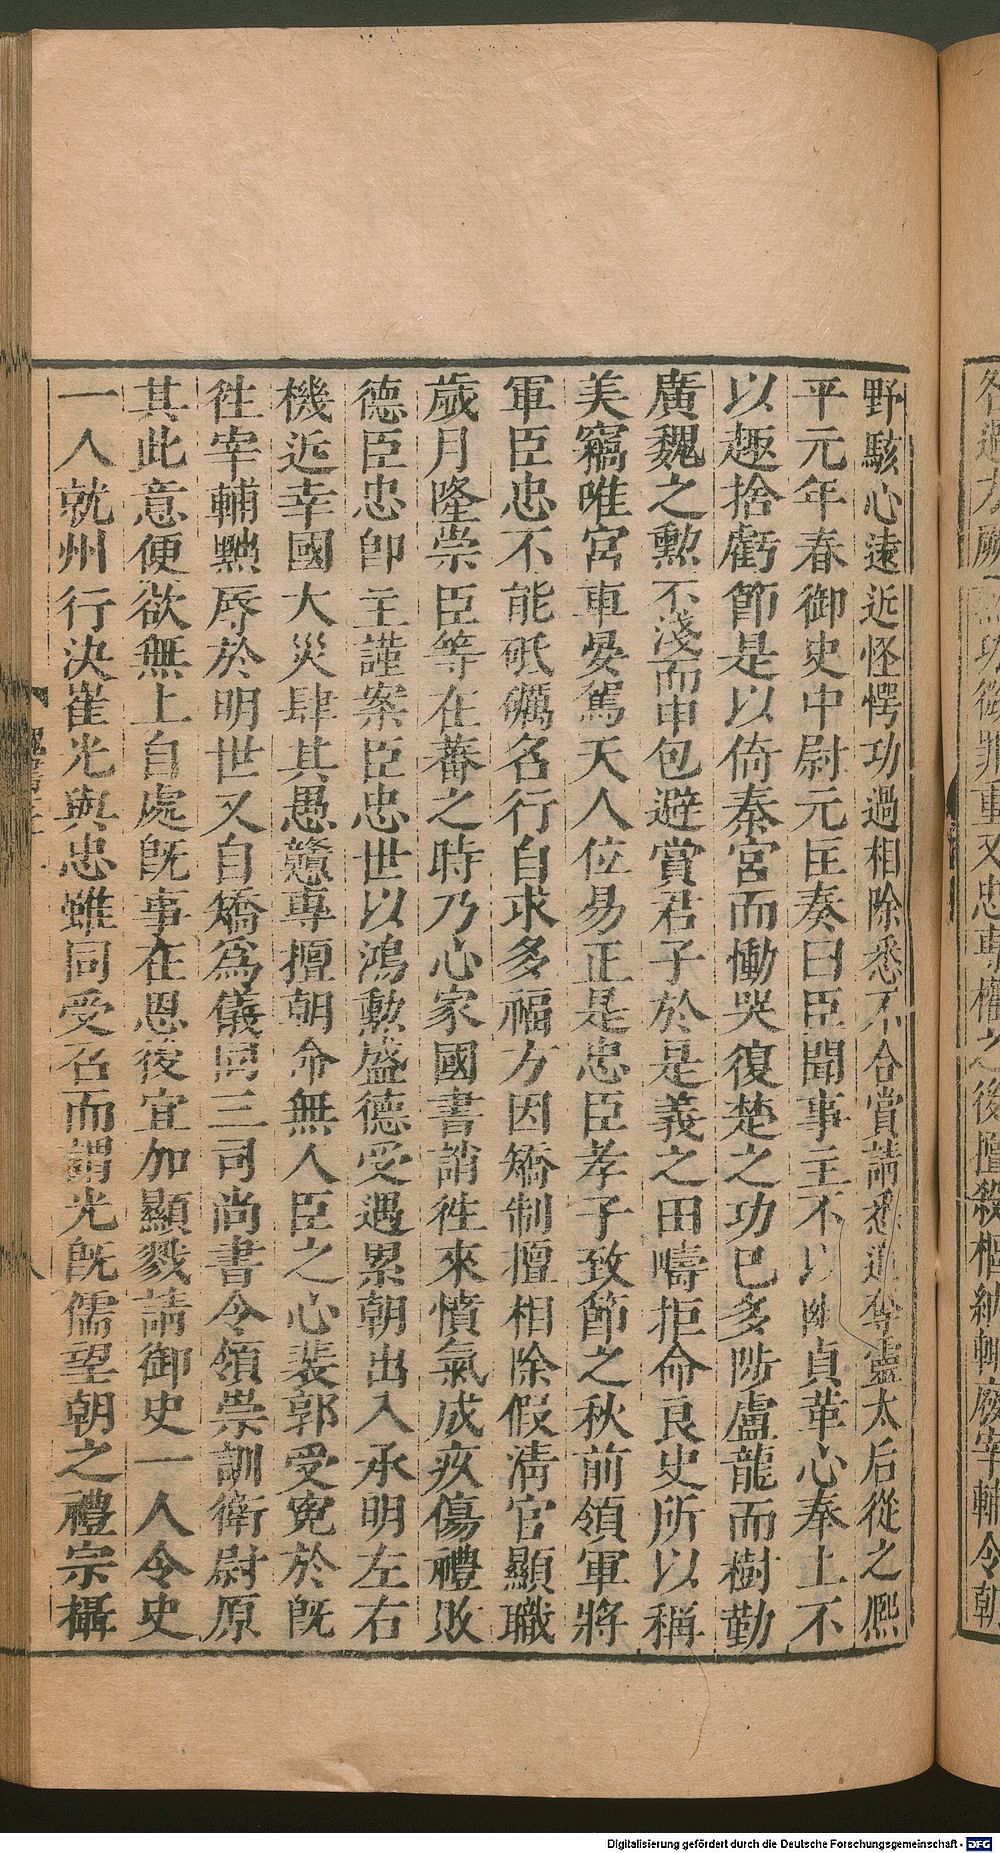 野駭心遠近怪愕功過相除悉不合賞請悉追奪靈太后從之熙
平元年春御史中尉元匡奏曰臣聞事主不以幽貞革心奉上不
以趣捨虧節是以倚秦宮而慟哭復楚之功已多陟盧龍而樹勤
廣魏之勲不淺而申包避賞君子於是義之田疇拒命良史所以稱
美竊唯宮車晏駕天人位易正是忠臣孝子致節之秋前領軍將
軍臣忠不能砥礪名行自求多福方因矯制擅相除假清官顯職
歲月隆崇臣等在蕃之時乃心家國書誚徃來憤氣成疢傷禮敗
德臣忠卽主謹案臣忠世以鴻勲盛德受遇累朝出入承明左右
機近幸國大災肆其愚戇專擅朝命無人臣之心裴郭受寃於旣
徃宰輔黜辱於明世又自矯爲儀同三司尚書令領崇訓衛尉原
其此意便欲無上自處旣事在恩後宜加顯戮請御史一人令史
一人就州行決崔光與忠雖同受召而謂光旣儒望朝之禮宗攝
Digitalisierung gefördert durch die Deutsche Forschungsgemeinschaft - DFG